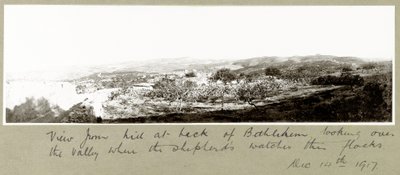 View from hill at back of Bethlehem looking over
the valley where the shepherds watches their flocks
Dec 14th 1917